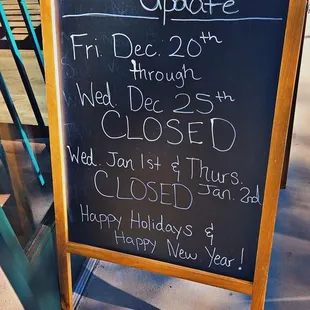 Update
Fri Dec. 20th
through
Wed. Dec 25th
CLOSED
Wed. Jan 1st & Thurs.
CLOSED Jan. 2nd
Happy Holidays &
Happy New Year!